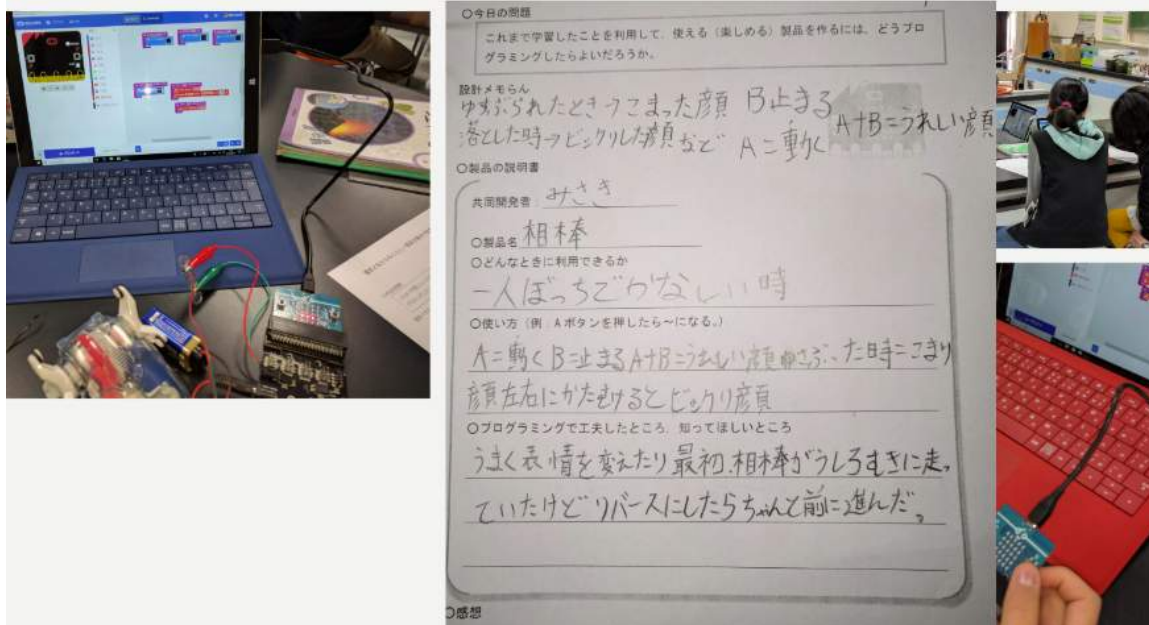 ○今日の問題
これまで学習したことを利用して，使える（楽しめる）製品を作るには，どうプロ
グラミングしたらよいだろうか。
設計メモらん
ゆさぶられたとき→こまった顔 B止まる
落とした時→ビックリした顔など A=動く
A+B=うれしい顔
○製品の説明書
共同開発者：みさき
○製品名 相棒
○どんなときに利用できるか
一人ぼっちでかなしい時
○使い方（例：Aボタンを押したら～になる。）
A=動くB=止まるA+B=うれしい顔ゆさぶった時=こまり
顔左右にかたむけるとビックリ顔
○プログラミングで工夫したところ，知ってほしいところ
うまく表情を変えたり最初、相棒がうしろむきに走っ
ていたけどリバースにしたらちゃんと前に進んだ。
○感想